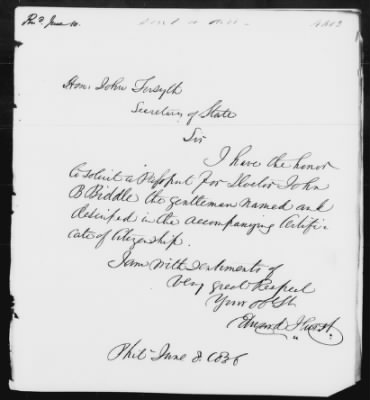 Hon. John Forsyth
Secretary of State
Sir
I have the honor
to solicit a Passport for Doctor John
B Biddle the gentleman named and
described in the accompanying Certifi-
cate of Citizenship.
I am with sentiments of
very great Respect
Your obt St
Edward Hurst
Phila June 8. 1836